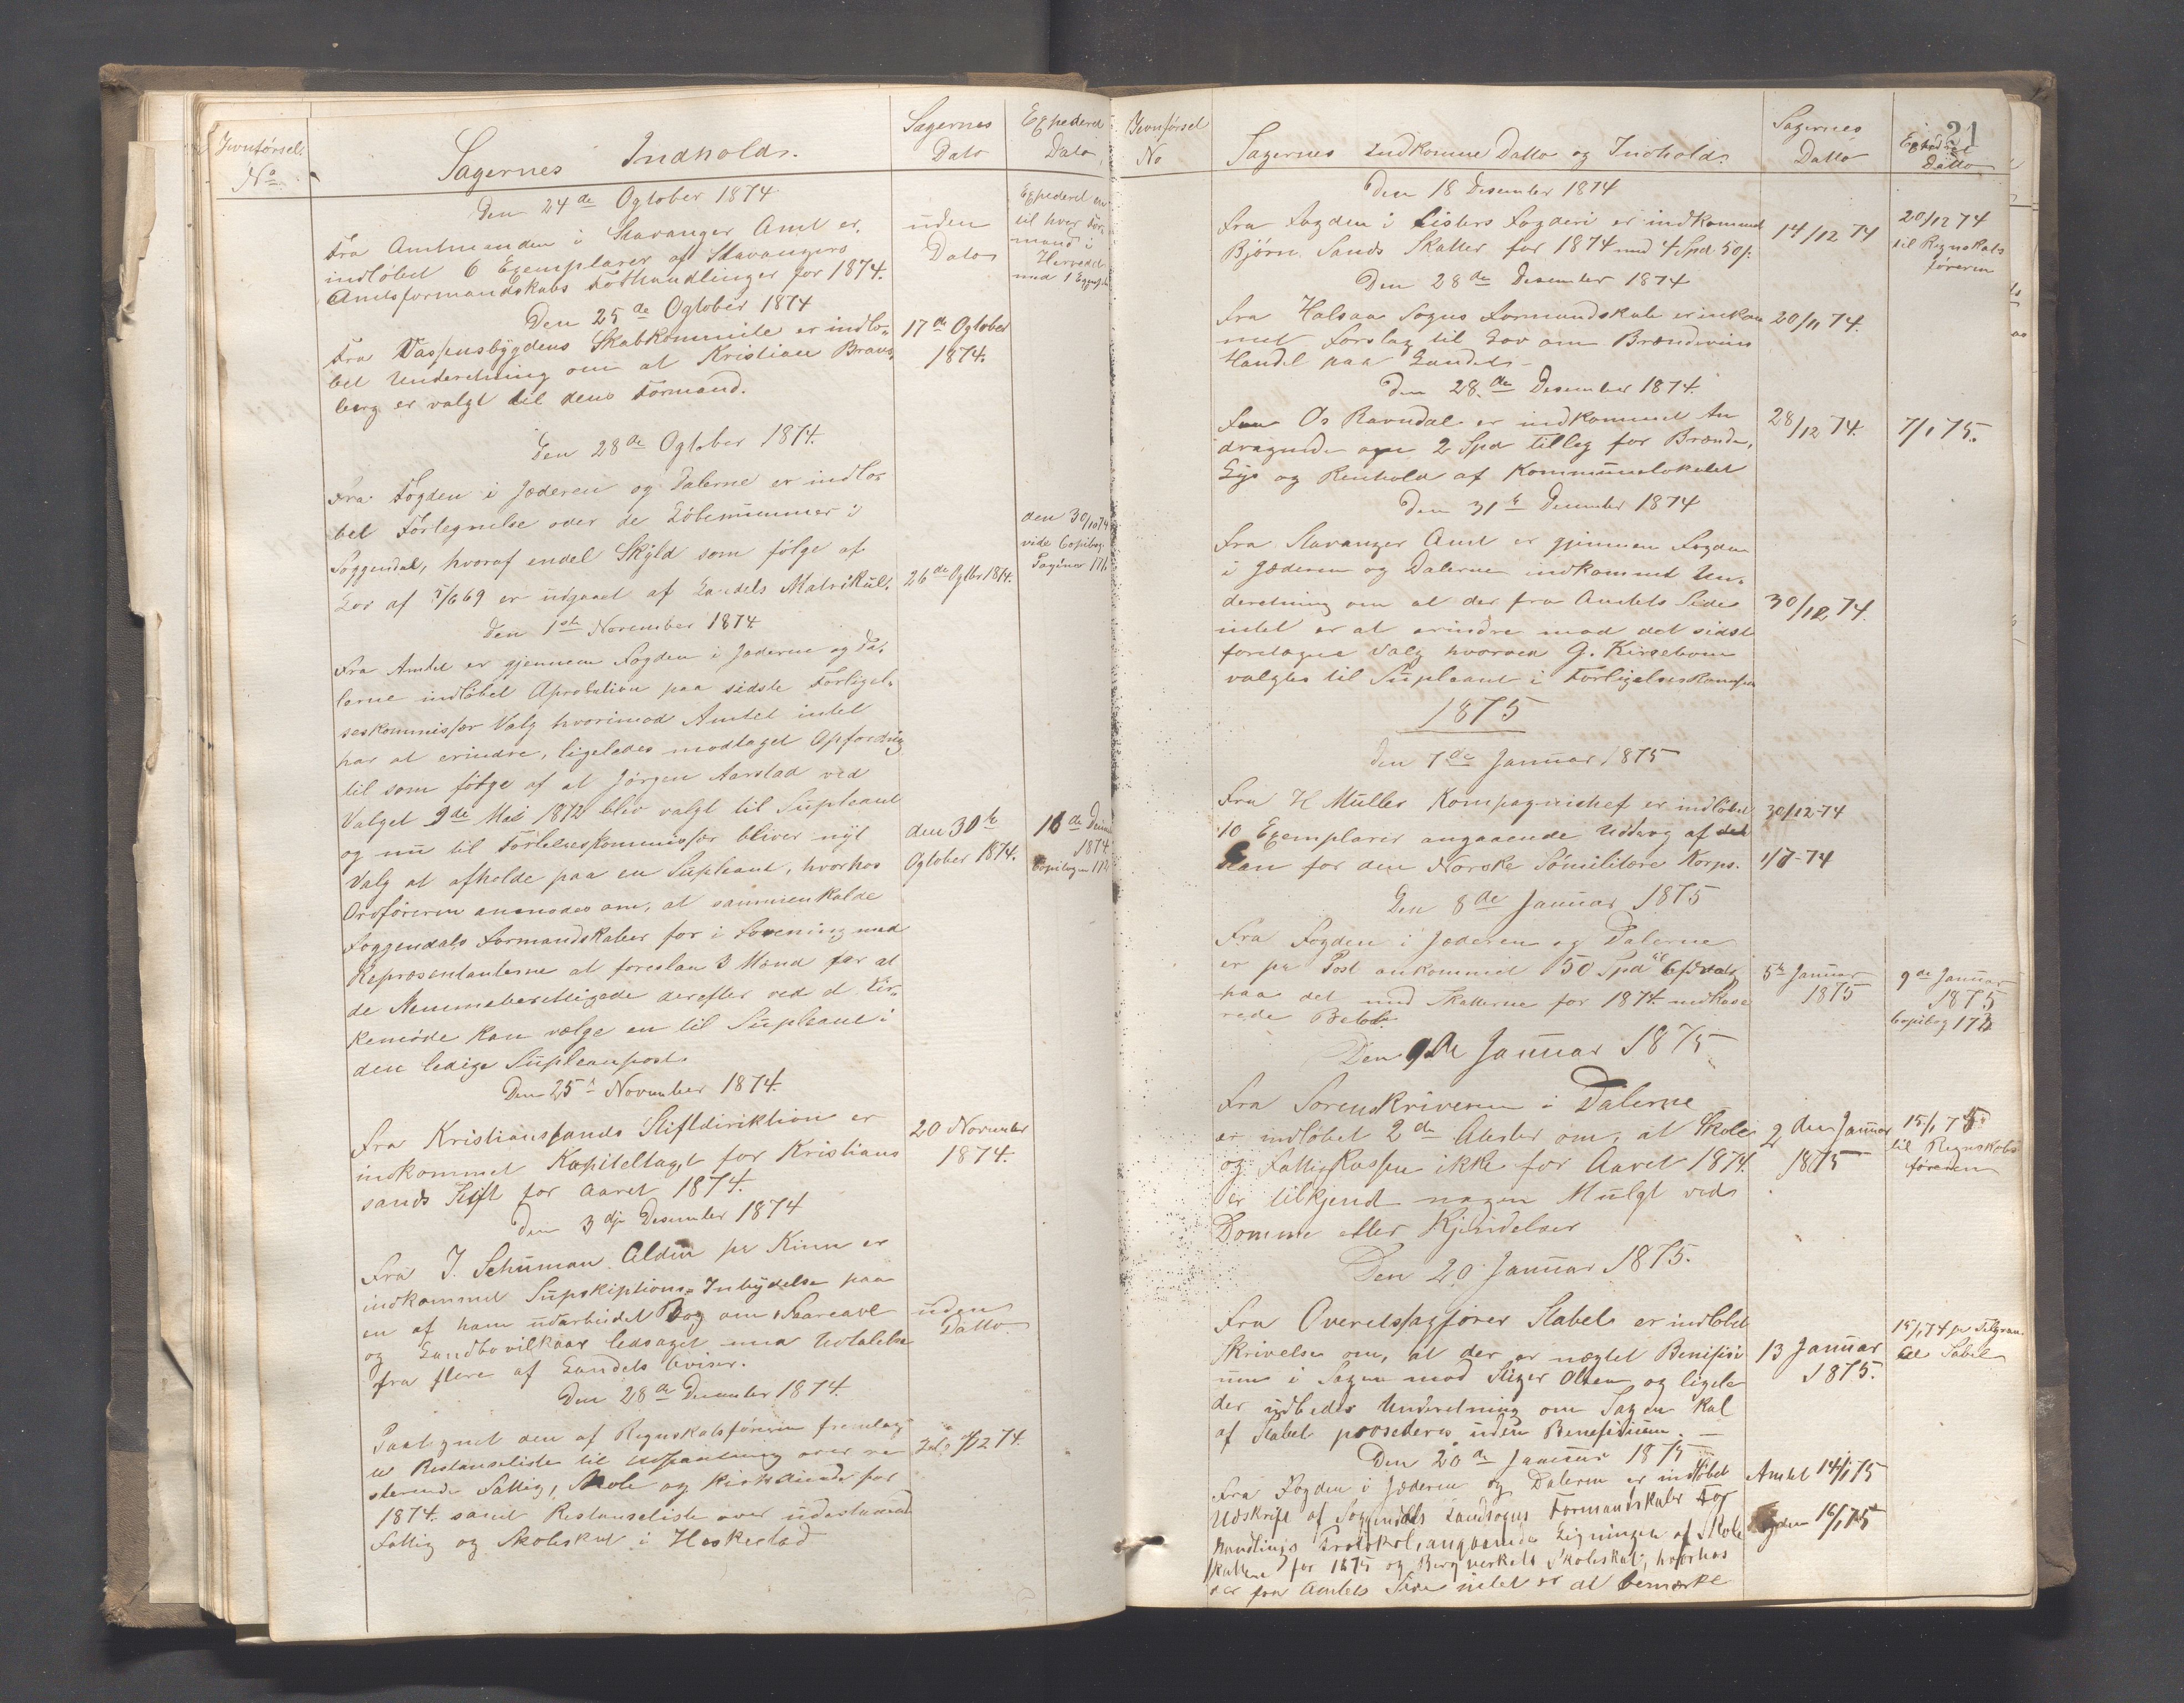 Jevnførsels
No
Sagernes Indhold.
Sagernes
Dato
Expederet
Dato
Den 24de Ogtober 1874
Fra Amtmanden i Stavanger Amt er
indløbet 6 Exemplarer af Stavangers
Amtsformandskabs Forhandlinger for 1874.
uden
Dato
Expederet en
til hver For-
mand i
Herredet
med 1 Expl
Den 25de Ogtober 1874
Fra Vassensbygdens Skabkommite er indlø-
bet Underetning om at Kristian Braus
berg er valgt til dens Formand.
17de Ogtober
1874.
Den 28de Ogtober 1874.
Fra Fogden i Jæderen og Dalerne er indlø-
bet Fortegnelse over de Løbenummer i
Soggendal, hvoraf endel Skyld som følge af
Lov af 5/6 69 er udgaaet af Landets Matrikul.
26de Ogtbr 1874.
den 30/10 74
vide Copibog
Pagina 171
Den 1ste November 1874
Fra Amtet er gjennem Fogden i Jæderen og Da-
lerne indløbet Aprobation paa sidste Forligel-
seskommissær Valg hvorimod Amtet intet
har at erindre, ligeledes modtaget Opfordring
til som følge af at Jørgen Aarstad ved
Valget 9de Mai 1872 blev valgt til Supleant
og nu til Forlelseskommissær bliver nyt
Valg at afholde paa en Supleant, hvorhos
Ordføreren anmodes om, at sammenkalde
Soggendals Formandskaber for i Forening med
Representanterne at foreslaa 3 Mænd før at
de Stemmeberettigede derefter ved et Kir-
kemøde kan vælge en til Supleant i
den ledige Supleanpost
den 30te
Ogtober 1874.
1874
Copibogen 172
Den 25de November 1874.
Fra Kristianssands Stiftdiriktion er
indkommet Kapiteltagst for Kristians
sands Stift for Aaret 1874.
20 November
1874.
Den 3dje Desember 1874
Fra J. Schuman Aldin pr Kinn er
indkommet Supskiptions-Inbydelse paa
en af ham udarbeidet Bog om Faareavl
og Landbovilkaar ledsaget med Udtalelse
fra flere af Landets Aviser.
uden
Datto
Den 28de Desember 1874.
Paategnet den af Regnskabsføreren fremlag-
te Restanseliste til Udpantning over re-
sterende Fattig, Skole og Kirkskatte for
1874. samt Restanseliste over udestaaende
Fattig og Skoleskat i Heskestad
7/12 74.
Jevnførsel
No
Sagernes Indkomne Datto og Indhold.
Sagernes
Datto
21
Expederet
Datto
Den 18 Desember 1874
Fra Fogden i Listers Fogderi er indkommet
Bjørn Sands Skatter for 1874 med 4 Spd 50 s.
14/12 74
20/12 74
til Regnskabs
føreren
Den 28de Desember 1874
Fra Halsaa Sogns Formandskab er inkom
met Forslag til Lov om Brændevins
Handel paa Landet
20/11 74.
Den 28de Desember 1874.
Fra Os Ravndal er indkommet An
dragende om 2 Spd Tillæg for Brænde,
Lys og Renhold af Kommunelokalet
28/12 74.
7/1 75.
Den 31te December 1874
Fra Stavanger Amt er gjennem Fogden
i Jæderen og Dalerne indkommet Un-
deretning om at der fra Amtets Side
intet er at erindre mod det sidst
foretagne Valg hvorved G. Kirsebom
valgtes til Supleant i Forligelseskomm
30/12 74.
1875
Den 7de Januar 1875
Fra H Müller Kompagnichef er indløbet
10 Exemplarer angaaende Uddrag af
Plan for den Norske Sømilitære Korps.
30/12-74
1/7-74
Den 8de Januar 1875
Fra Fogden i Jæderen og Dalerne
er pr Post ankommet 50 Spd
paa det med Skatterne for 1874 indkasse
rede Beløb
5te Januar
1875
9de Januar
1875
Copibog 173
Den 9de Januar 1875
Fra Sorenskriveren i Dalerne
er indløbet 2de Atester om, at Skole
og Fattigkassen ikke for Aaret 1874
er tilkjendt nogen Mulgt ved
Domme eller Kjendelser
2den Januar
1875
15/1 75
til Regnskabs
føreren
Den 20 Januar 1875.
Fra Overetssagfører Stabel er indløbet
Skrivelse om, at der er nægtet Benifisi
um i Sagen mod Steger Olsen og ligele
der udbedes Underetning om Sagen skal
af Stabel prosederes uden Benefisium. —
13 Januar
1875.
15/1 74 pr Telgram
til Sabel
Den 20de Januar 1875
Fra Fogden i Jæderen og Dalerne er indløbet
Udskrift af Soggendals Landsogns Formandskabs For
handlings Protokol, angaaende Ligningen af Skole
skattene for 1875 og Bergverkets Skoleskat, hvorhos
der fra Amtets Side intet er at bemærke
Amtet 14/1 75
Fogden 16/1 75